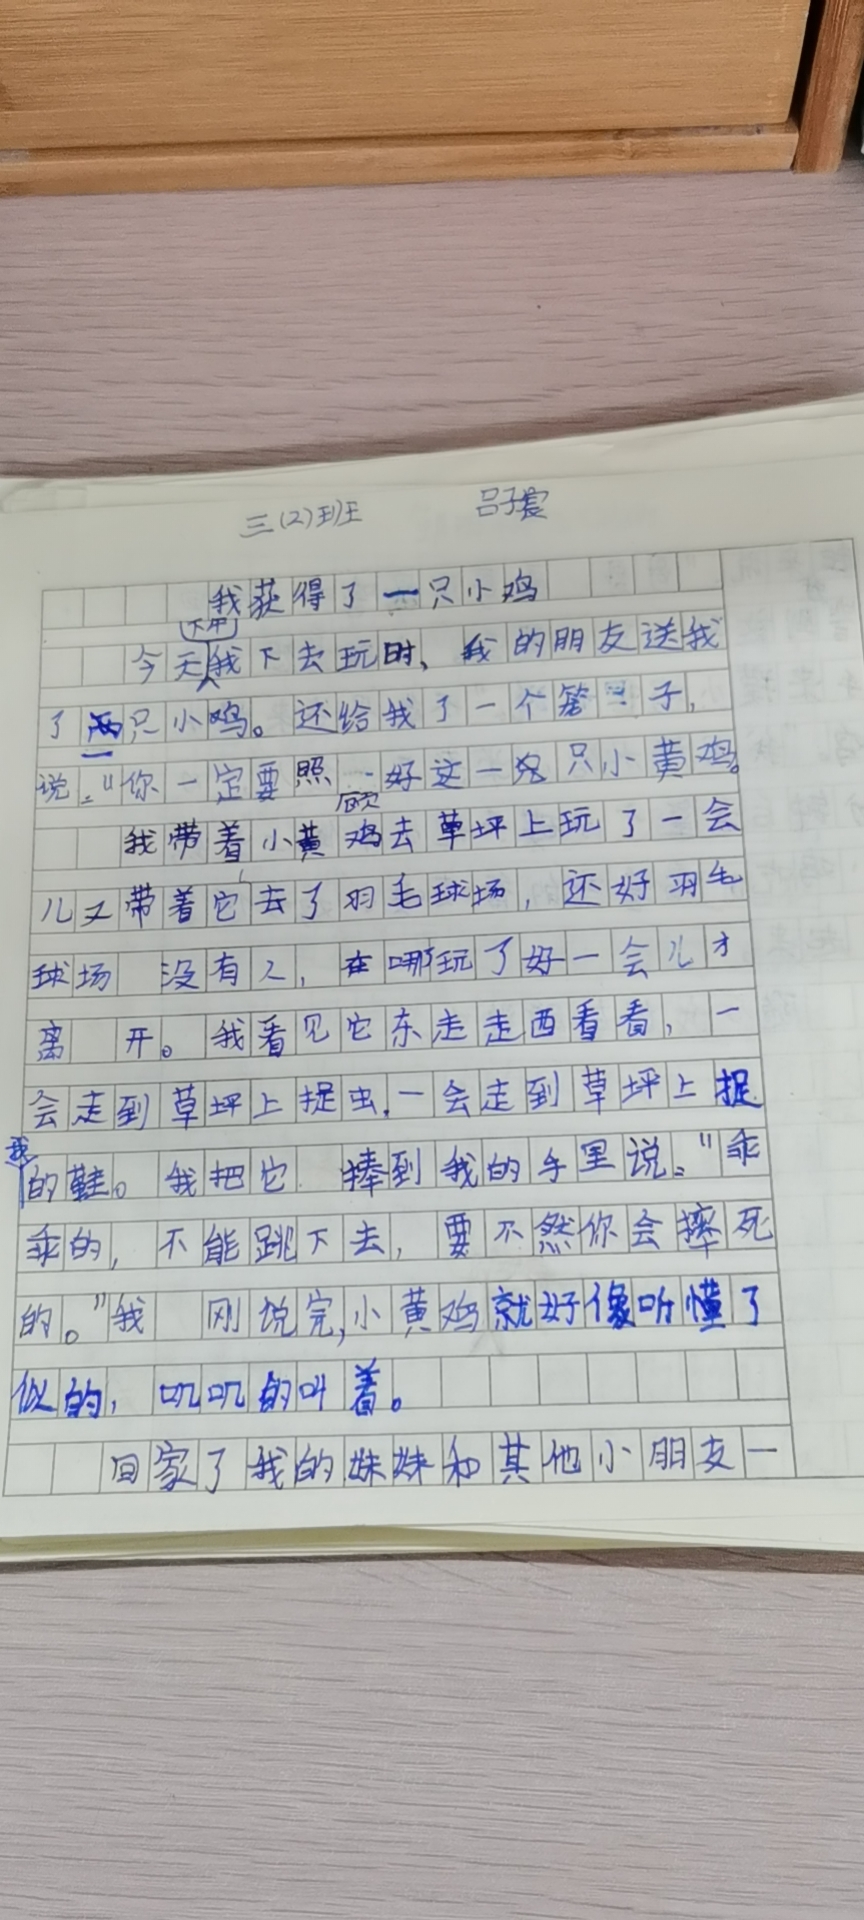 三(2)班 吕子宸
我获得了一只小鸡
今天下午我下去玩时，我的朋友送我
了一只小鸡。还给我了一个笼子，
说："你一定要照顾好这一只小黄鸡。
我带着小黄鸡去草坪上玩了一会
儿又带着它去了羽毛球场，还好羽毛
球场没有人，在哪玩了好一会儿才
离开。我看见它东走走西看看，一
会走到草坪上捉虫，一会走到草坪上捉
我的鞋。我把它捧到我的手里说："乖
乖的，不能跳下去，要不然你会摔死
的。"我刚说完，小黄鸡就好像听懂了
似的，叽叽的叫着。
回家了我的妹妹和其他小朋友一